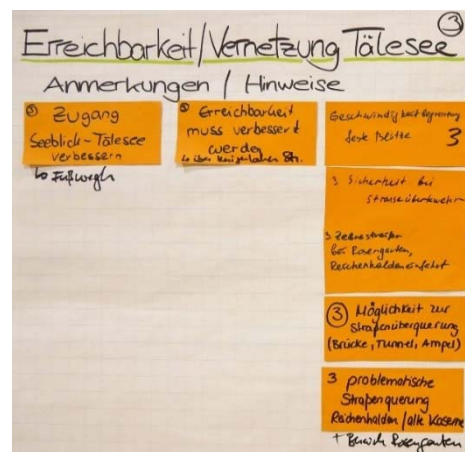 Erreichbarkeit/Vernetzung Tälesee ③
Anmerkungen / Hinweise
③ Zugang
Seeblick-Tälesee
verbessern
↳ Fußwegh
③ Erreichbarkeit
muss verbessert
werden
↳ über Str.
Geschwindigkeitsbegrenzung
feste Blitze 3
3 Sicherheit bei
3 Zebrastreifen
bei Rosengarten,
③ Möglichkeit zur
Straßenüberquerung
(Brücke, Tunnel, Ampel)
3 problematische
Straßenquerung
Reichenhalden / alte Kaserne
+ Bereich Rosengarten